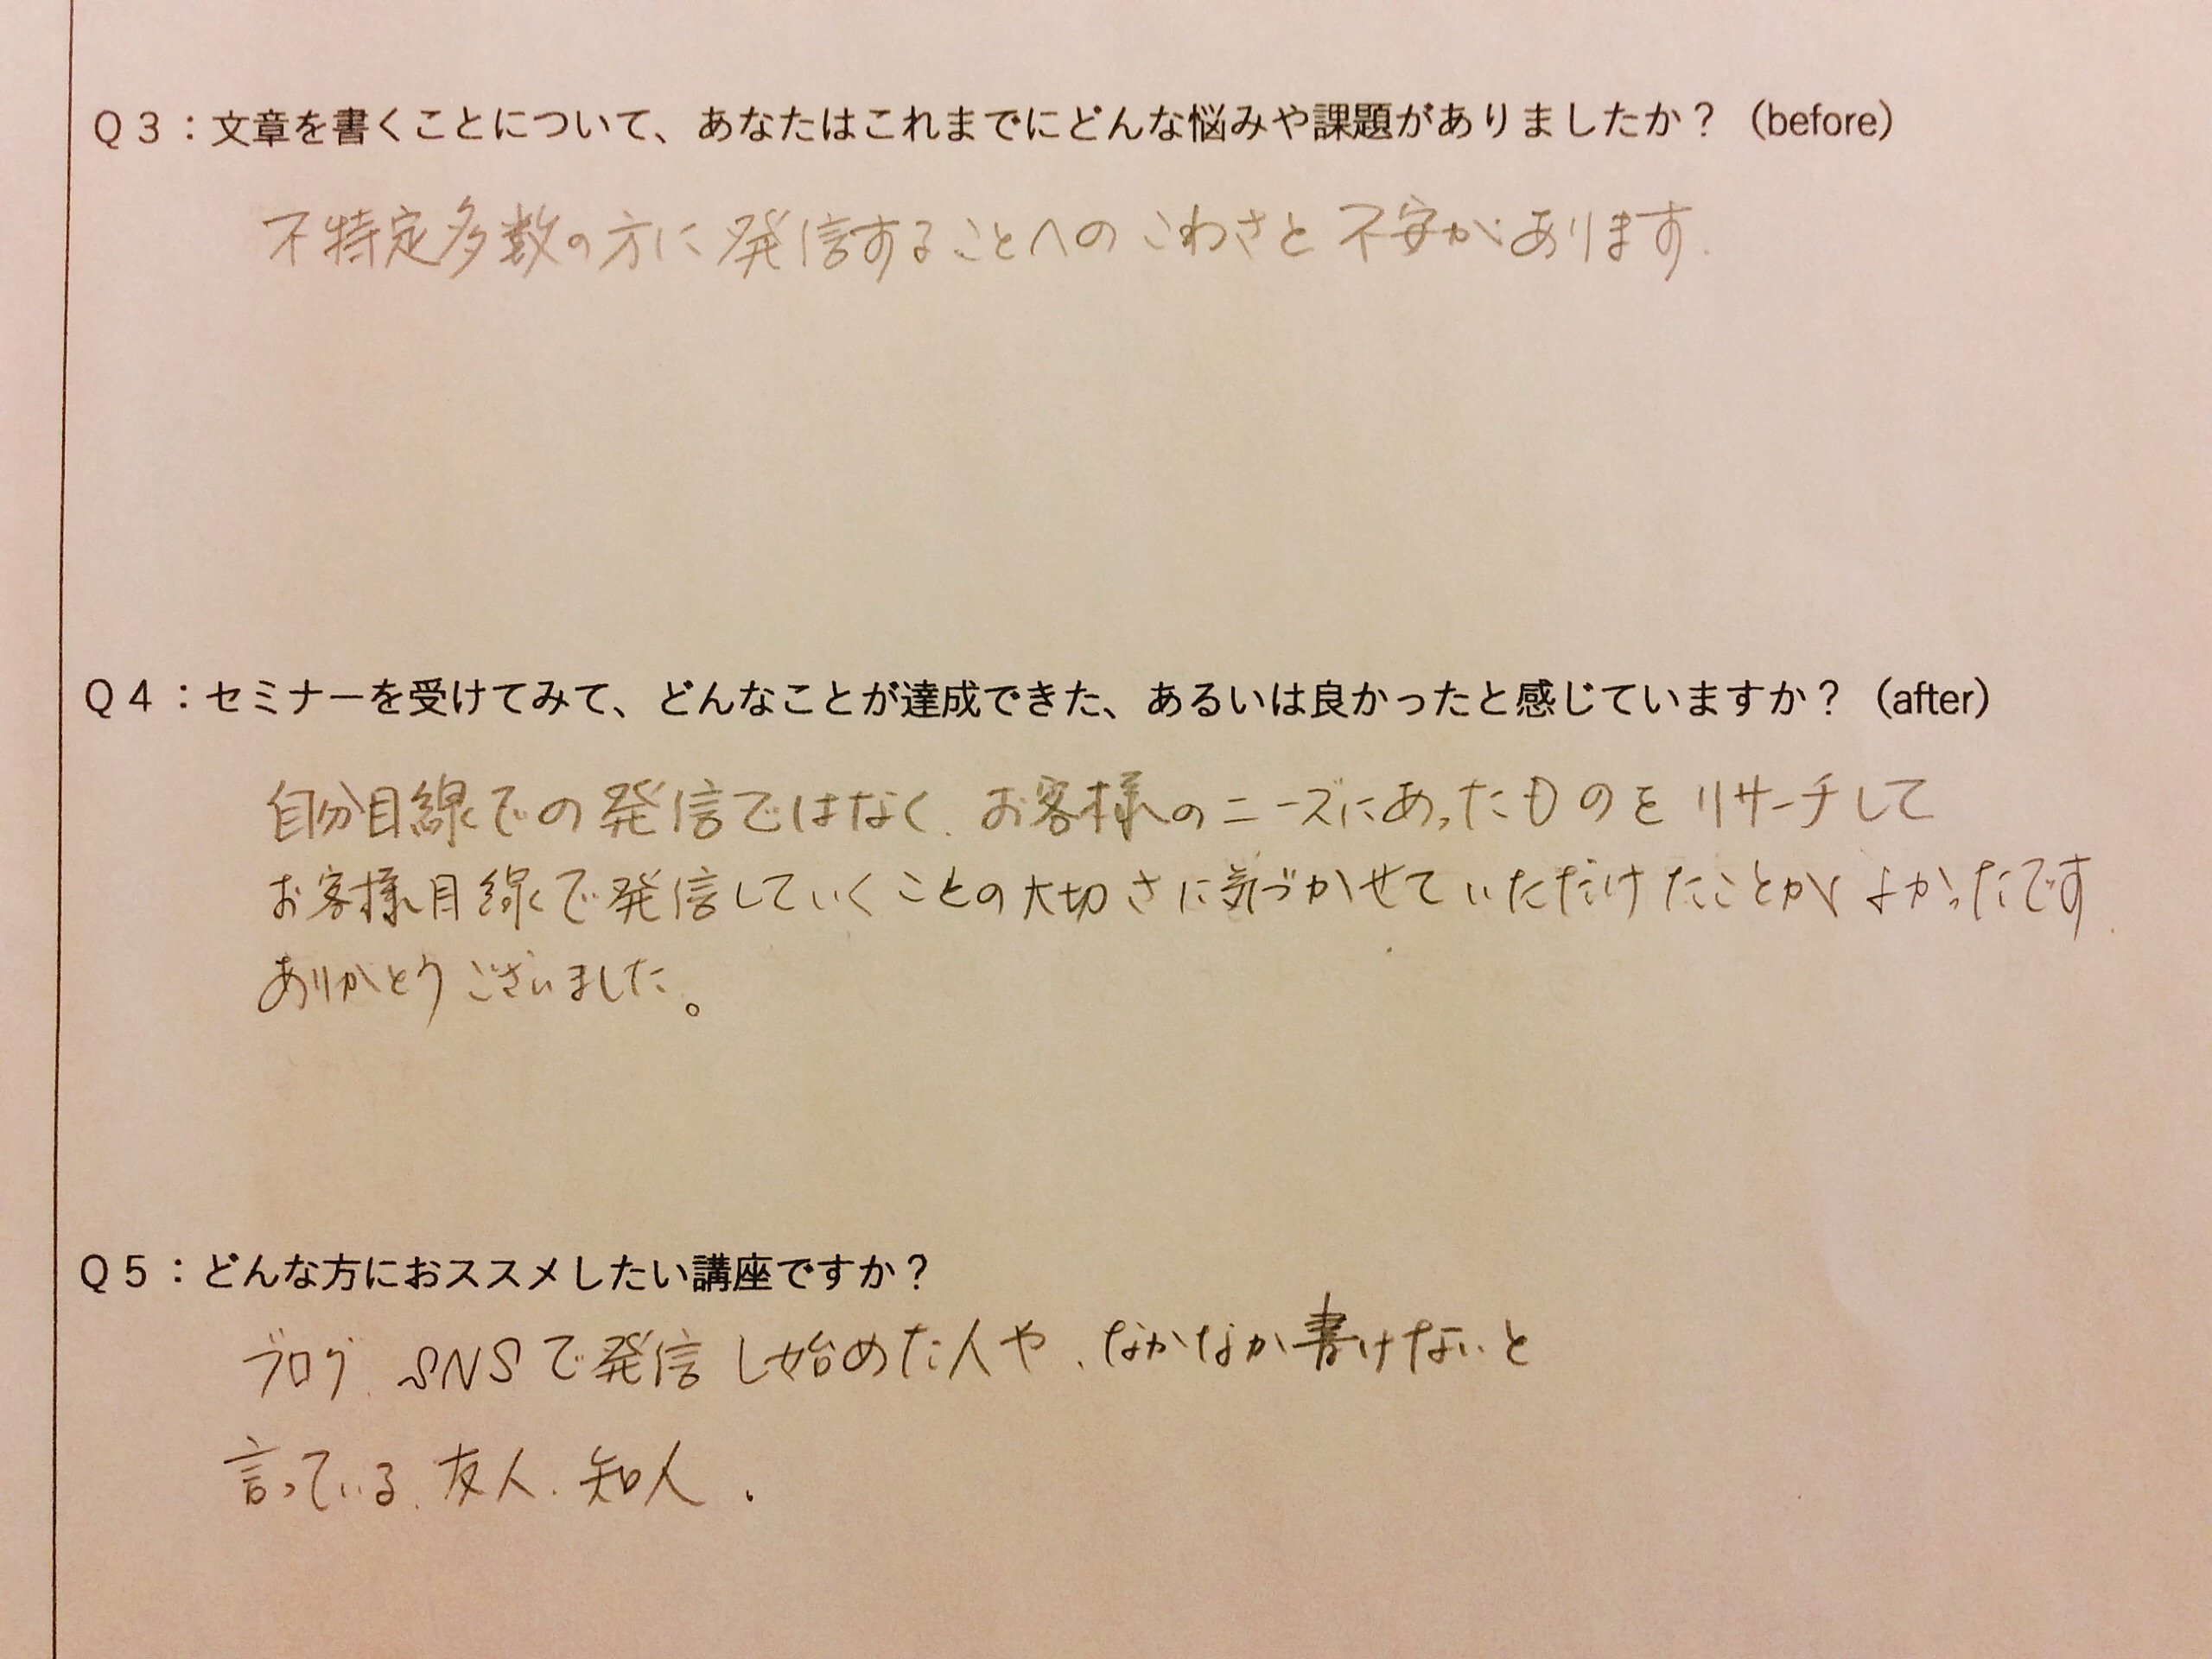 Q3：文章を書くことについて、あなたはこれまでにどんな悩みや課題がありましたか？（before）
不特定多数の方に発信することへのこわさと不安があります.
Q4：セミナーを受けてみて、どんなことが達成できた、あるいは良かったと感じていますか？（after）
自分目線での発信ではなく、お客様のニーズにあったものをリサーチして
お客様目線で発信していくことの大切さに気づかせていただけたことがよかったです.
ありがとうございました。
Q5：どんな方におススメしたい講座ですか？
ブログ、SNSで発信し始めた人や、なかなか書けないと
言っている、友人、知人、